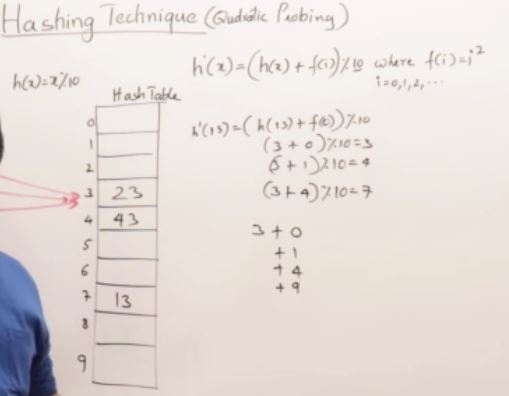 Hashing Technique (Qudratic Probing)
h'(x)=(h(x)+f(i))%10 where f(i)=i²
i=0,1,2,...
h(x)=x%10
Hash Table
0
1
2
3 23
4 43
5
6
7 13
8
9
h'(13)=(h(13)+f(0))%10
(3+0)%10=3
(3+1)%10=4
(3+4)%10=7
3+0
+1
+4
+9